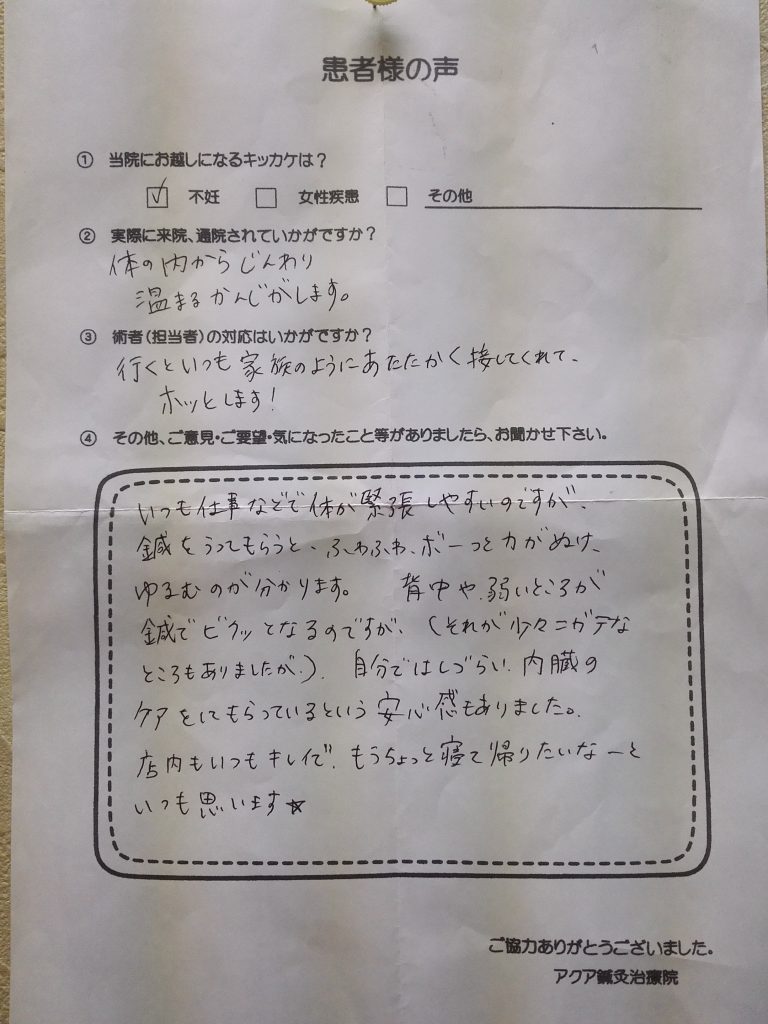 患者様の声
① 当院にお越しになるキッカケは？
☑ 不妊 □ 女性疾患 □ その他
② 実際に来院、通院されていかがですか？
体の内からじんわり
温まるかんじがします。
③ 術者(担当者)の対応はいかがですか？
行くといつも家族のようにあたたかく接してくれて、
ホッとします!
④ その他、ご意見・ご要望・気になったこと等がありましたら、お聞かせ下さい。
いつも仕事などで体が緊張しやすいのですが、
鍼をうってもらうと、ふわふわ、ボーっと力がぬけ、
ゆるむのが分かります。 背中や、弱いところが
鍼でビクッとなるのですが、(それが少々ニガテな
ところもありましたが、)、自分ではしづらい、内臓の
ケアをしてもらっているという安心感もありました。
店内もいつもキレイで、もうちょっと寝て帰りたいなーと
いつも思います☆
ご協力ありがとうございました。
アクア鍼灸治療院